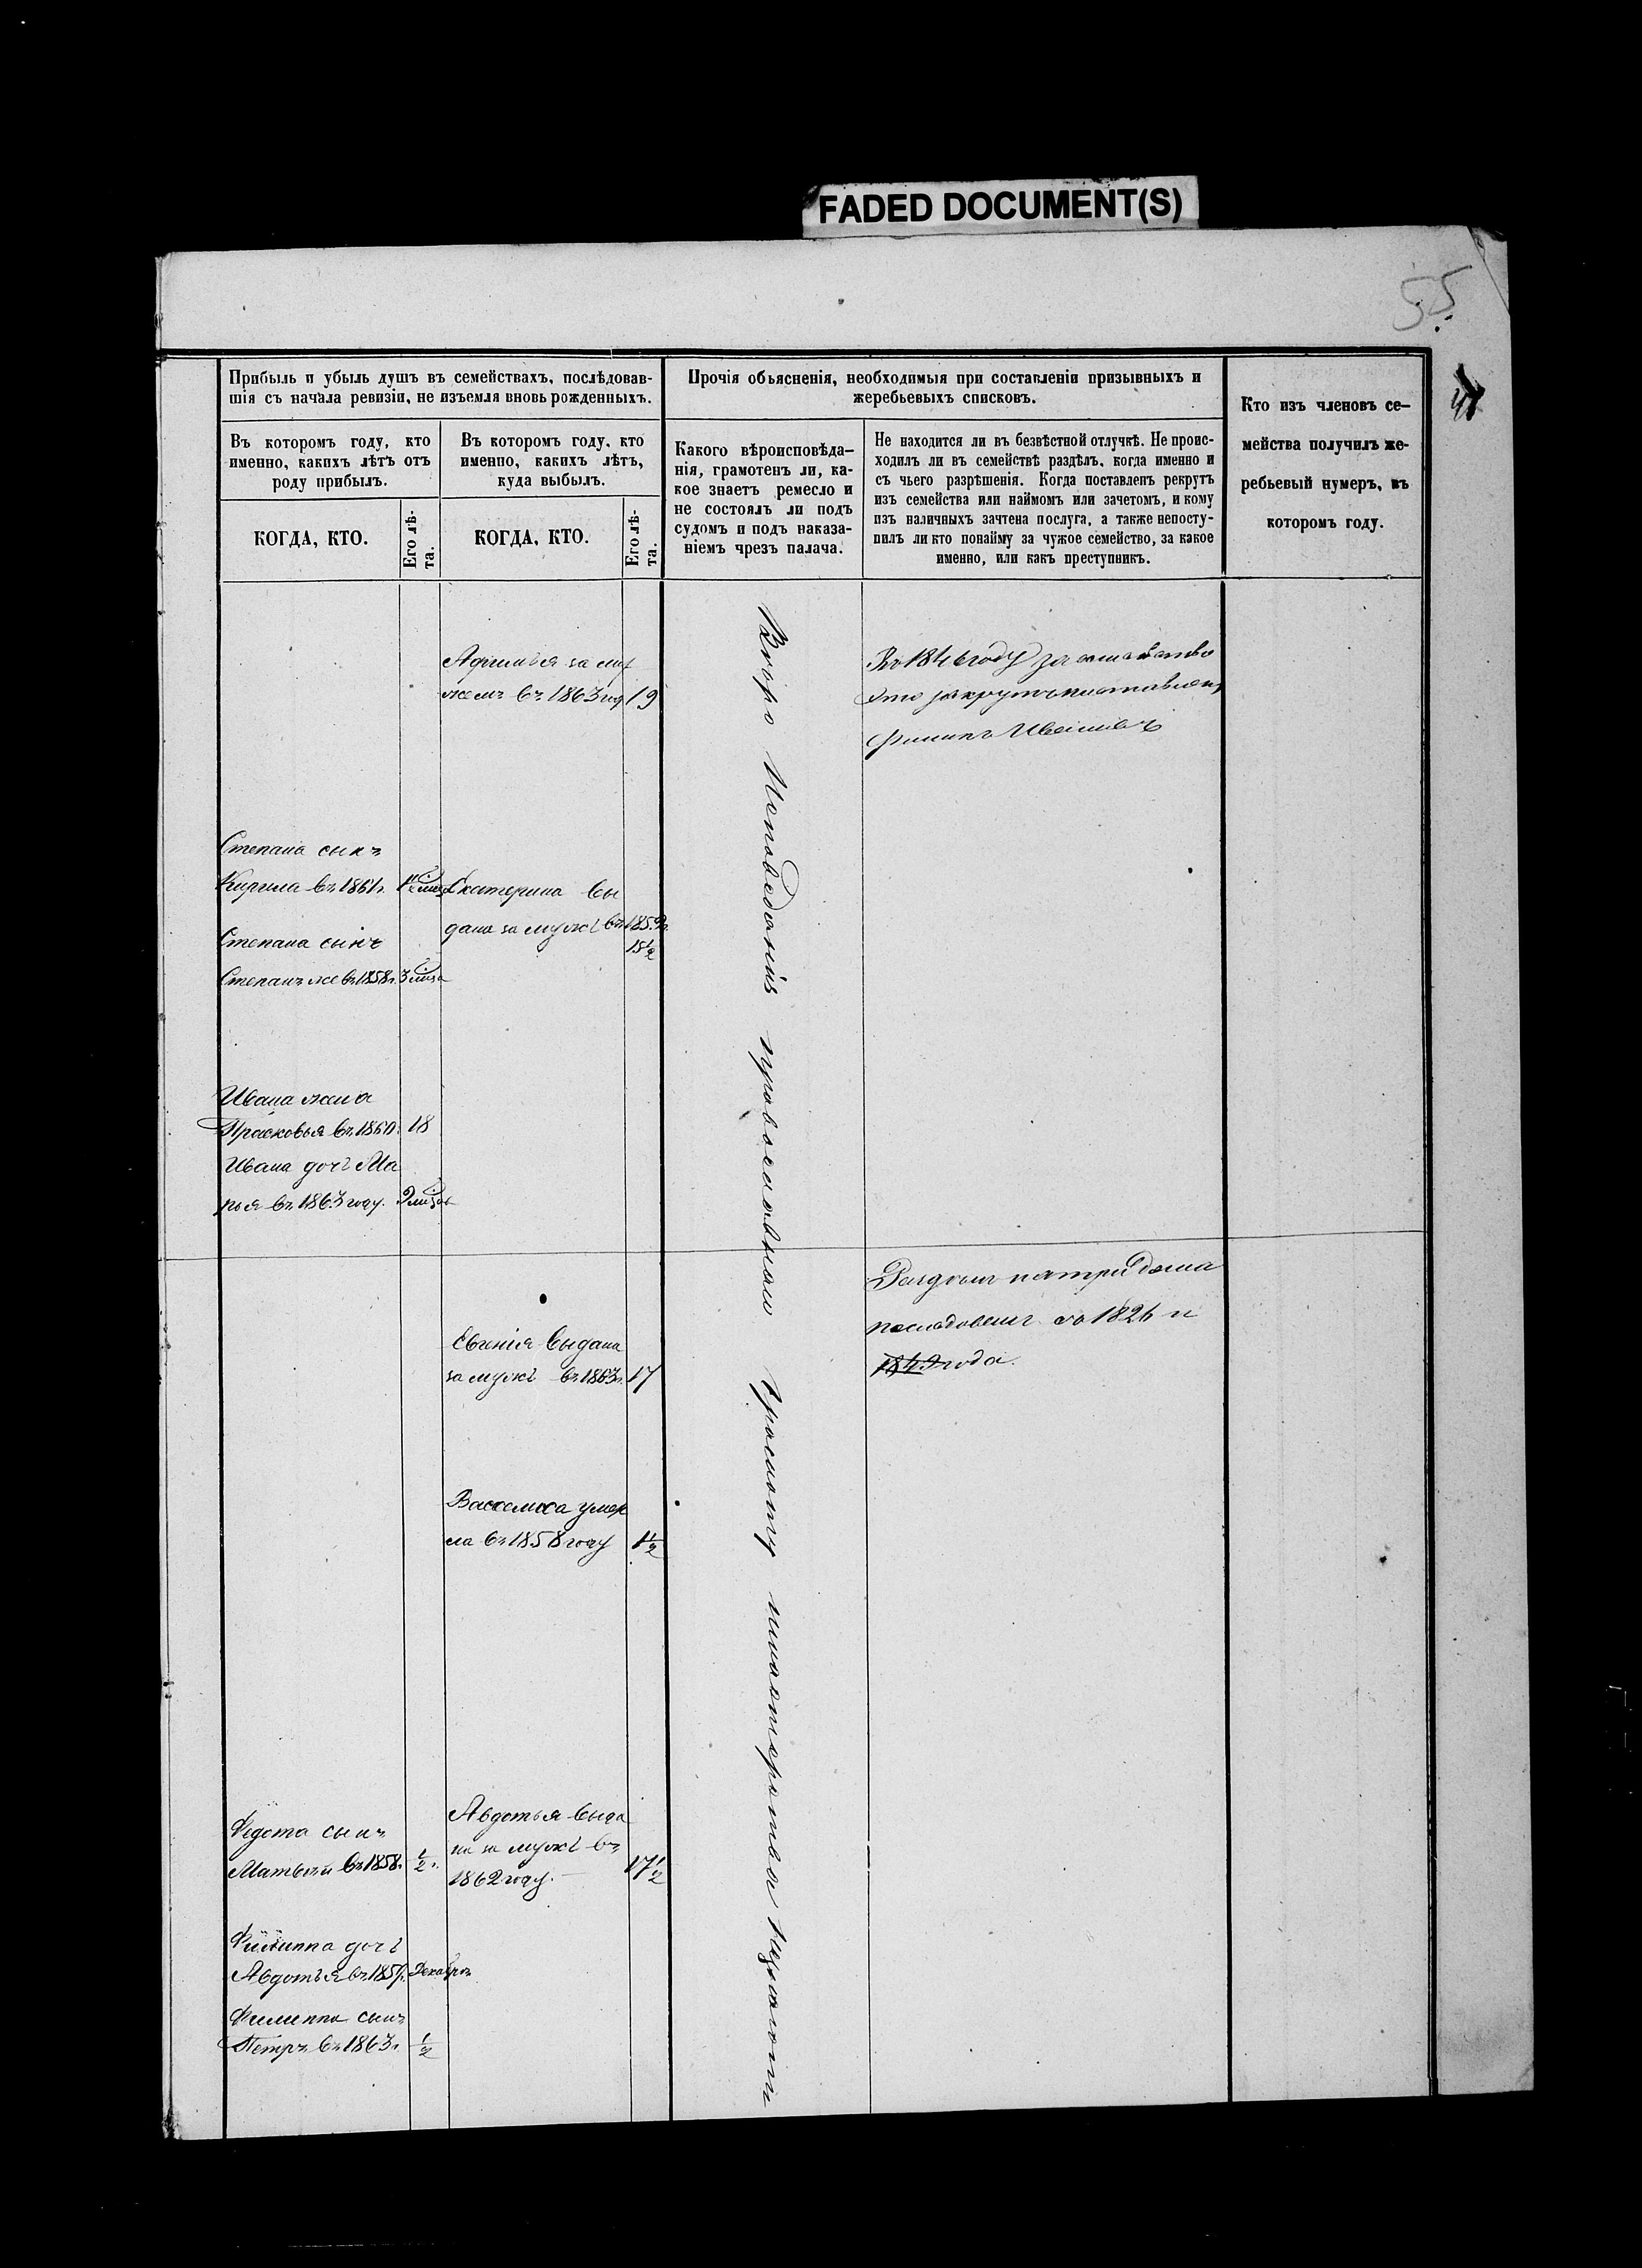 FADED DOCUMENT(S)
55.
Прибыль и убыль душъ въ семействахъ, послѣдовав-
шія съ начала ревизіи, не изъемля вновь рожденныхъ.
Прочія объясненія, необходимыя при составленіи призывныхъ и
жеребьевыхъ списковъ.
Кто изъ членовъ се-
мейства получилъ же-
ребьевый нумеръ, въ
которомъ году.
Въ которомъ году, кто
именно, какихъ лѣтъ отъ
роду прибылъ.
Въ которомъ году, кто
именно, какихъ лѣтъ,
куда выбылъ.
Какого вѣроисповѣда-
нія, грамотенъ ли, ка-
кое знаетъ ремесло и
не состоялъ ли подъ
судомъ и подъ наказа-
ніемъ чрезъ палача.
Не находится ли въ безвѣстной отлучкѣ. Не проис-
ходилъ ли въ семействѣ раздѣлъ, когда именно и
съ чьего разрѣшенія. Когда поставленъ рекрутъ
изъ семейства или наймомъ или зачетомъ, и кому
изъ наличныхъ зачтена послуга, а также непосту-
пилъ ли кто понайму за чужое семейство, за какое
именно, или какъ преступникъ.
КОГДА, КТО.
Его лѣ-
та.
КОГДА, КТО.
Его лѣ-
та.
за му
жемъ въ 1863 год 19
Во 1846 году за семейство
это рекрутъ поставленъ
Филипъ Ивановъ
Степана сынъ
Кирила въ 1861г.
Степана сынъ
Степанъ же въ 1858г. 3 мѣсца
Екатерина вы
дана за мужъ въ 1859г.
18½
Ивана жена
Прасковья въ 1860. 18
Ивана дочь Ма
рья въ 1863 году.
Вѣро Исповеданія православнаго грамоты и мастерства незнаютъ
Евгенія выдана
за мужъ въ 1863г. 17
Раздѣлъ натри дома
последовалъ со 1826 и
1849 года.
Васелиса умер
ла въ 1858 году 1½
Федота сынъ
Матвей въ 1858г. ½.
Авдотья выда
на за мужъ въ
1862 году. 17½
Филиппа дочь
Авдотья въ 1857г.
Филиппа сынъ
Петръ въ 1863г. ½